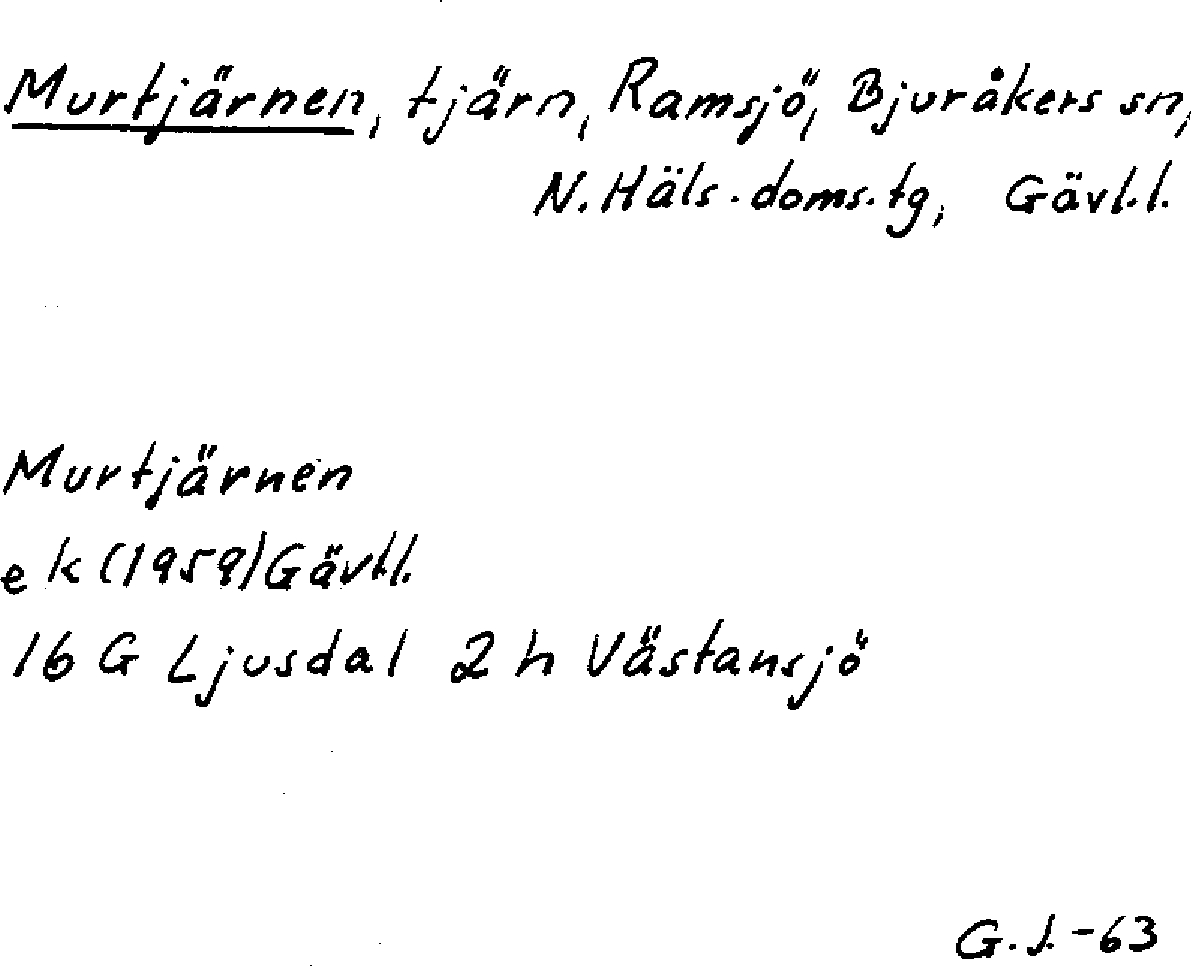 Murtjärnen, tjärn, Ramsjö, Bjuråkers sn,
N. Häls. doms. tg, Gävl.l.
Murtjärnen
ek (1959) Gävl.l.
16 G Ljusdal 2 h Västansjö
G.J. -63